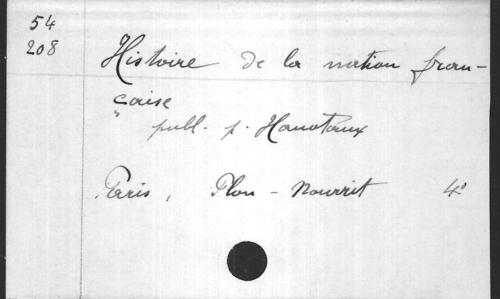 54
208
Histoire de la nation fran-
çaise
publ. p. Hanotaux
Paris, Plon-Nourrit 4°